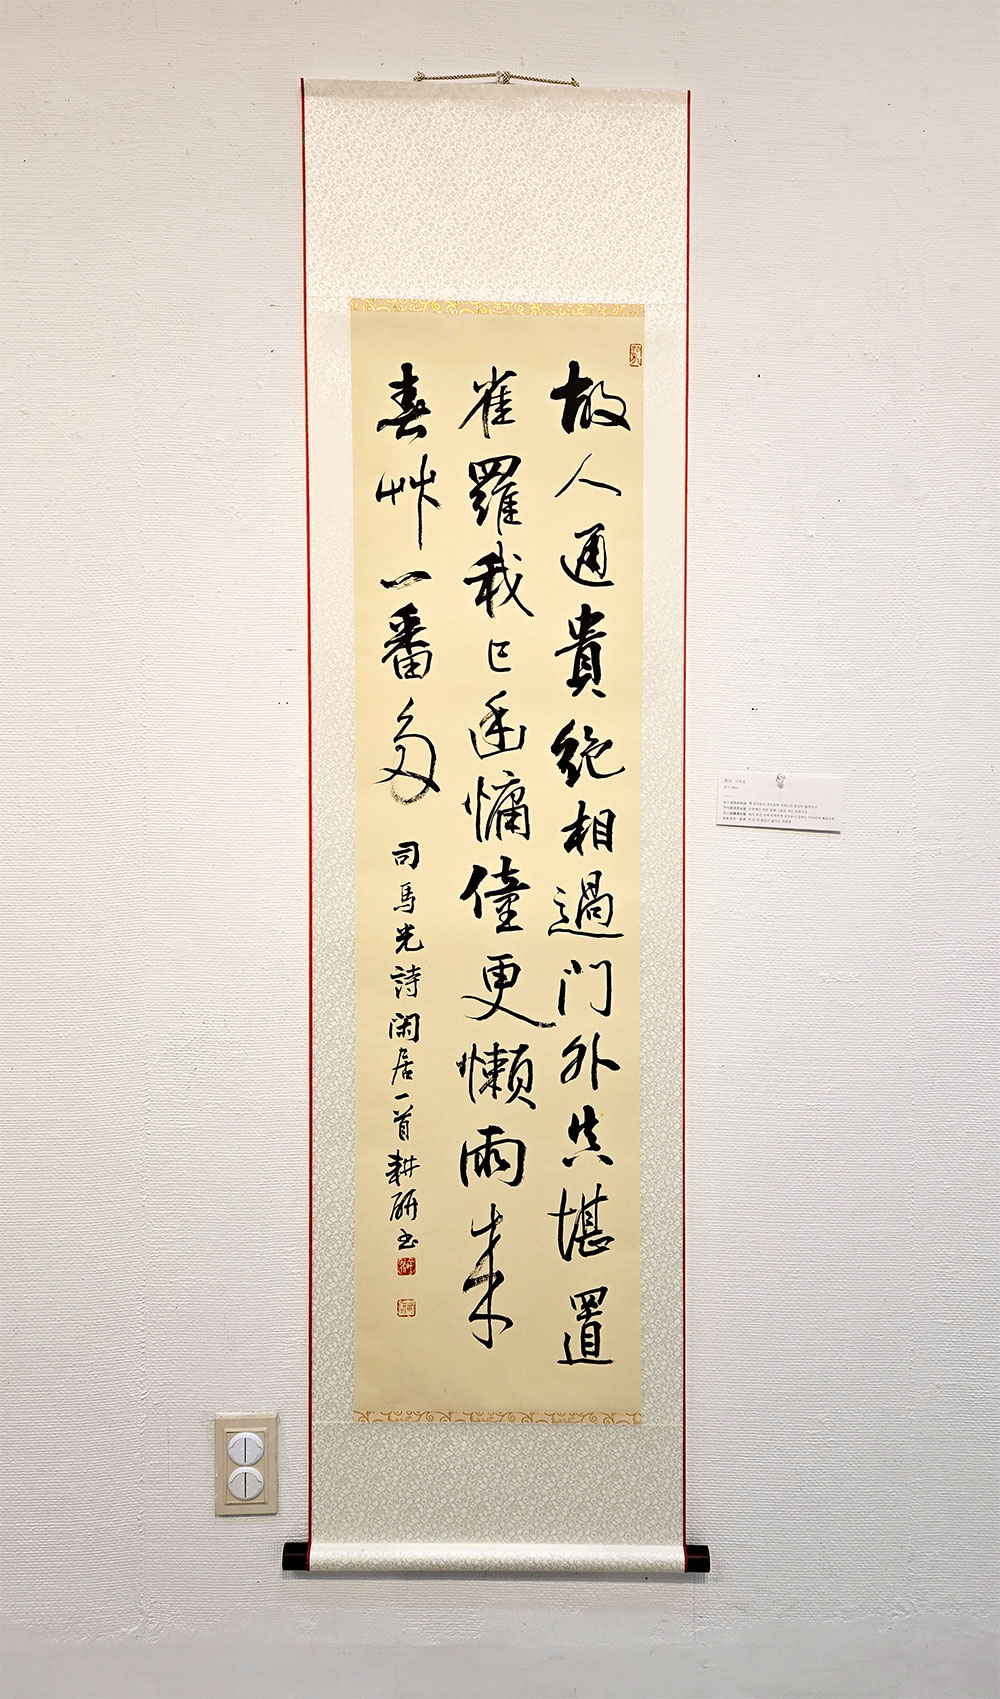 故人通貴絶相過门外真堪置
雀羅我已幽慵僮更懶雨来
春艸一番多 司馬光詩閑居一首耕研书